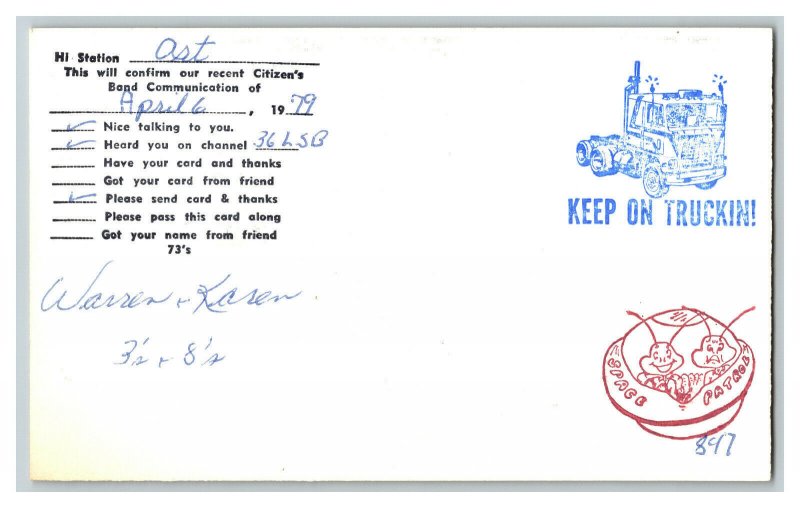 Hi Station Ast
This will confirm our recent Citizen's
Band Communication of
April 6, 1979
✓ Nice talking to you.
✓ Heard you on channel 36 LSB
Have your card and thanks
Got your card from friend
✓ Please send card & thanks
Please pass this card along
Got your name from friend
73's
Warren + Karen
3's + 8's
KEEP ON TRUCKIN!
SPACE PATROL
897